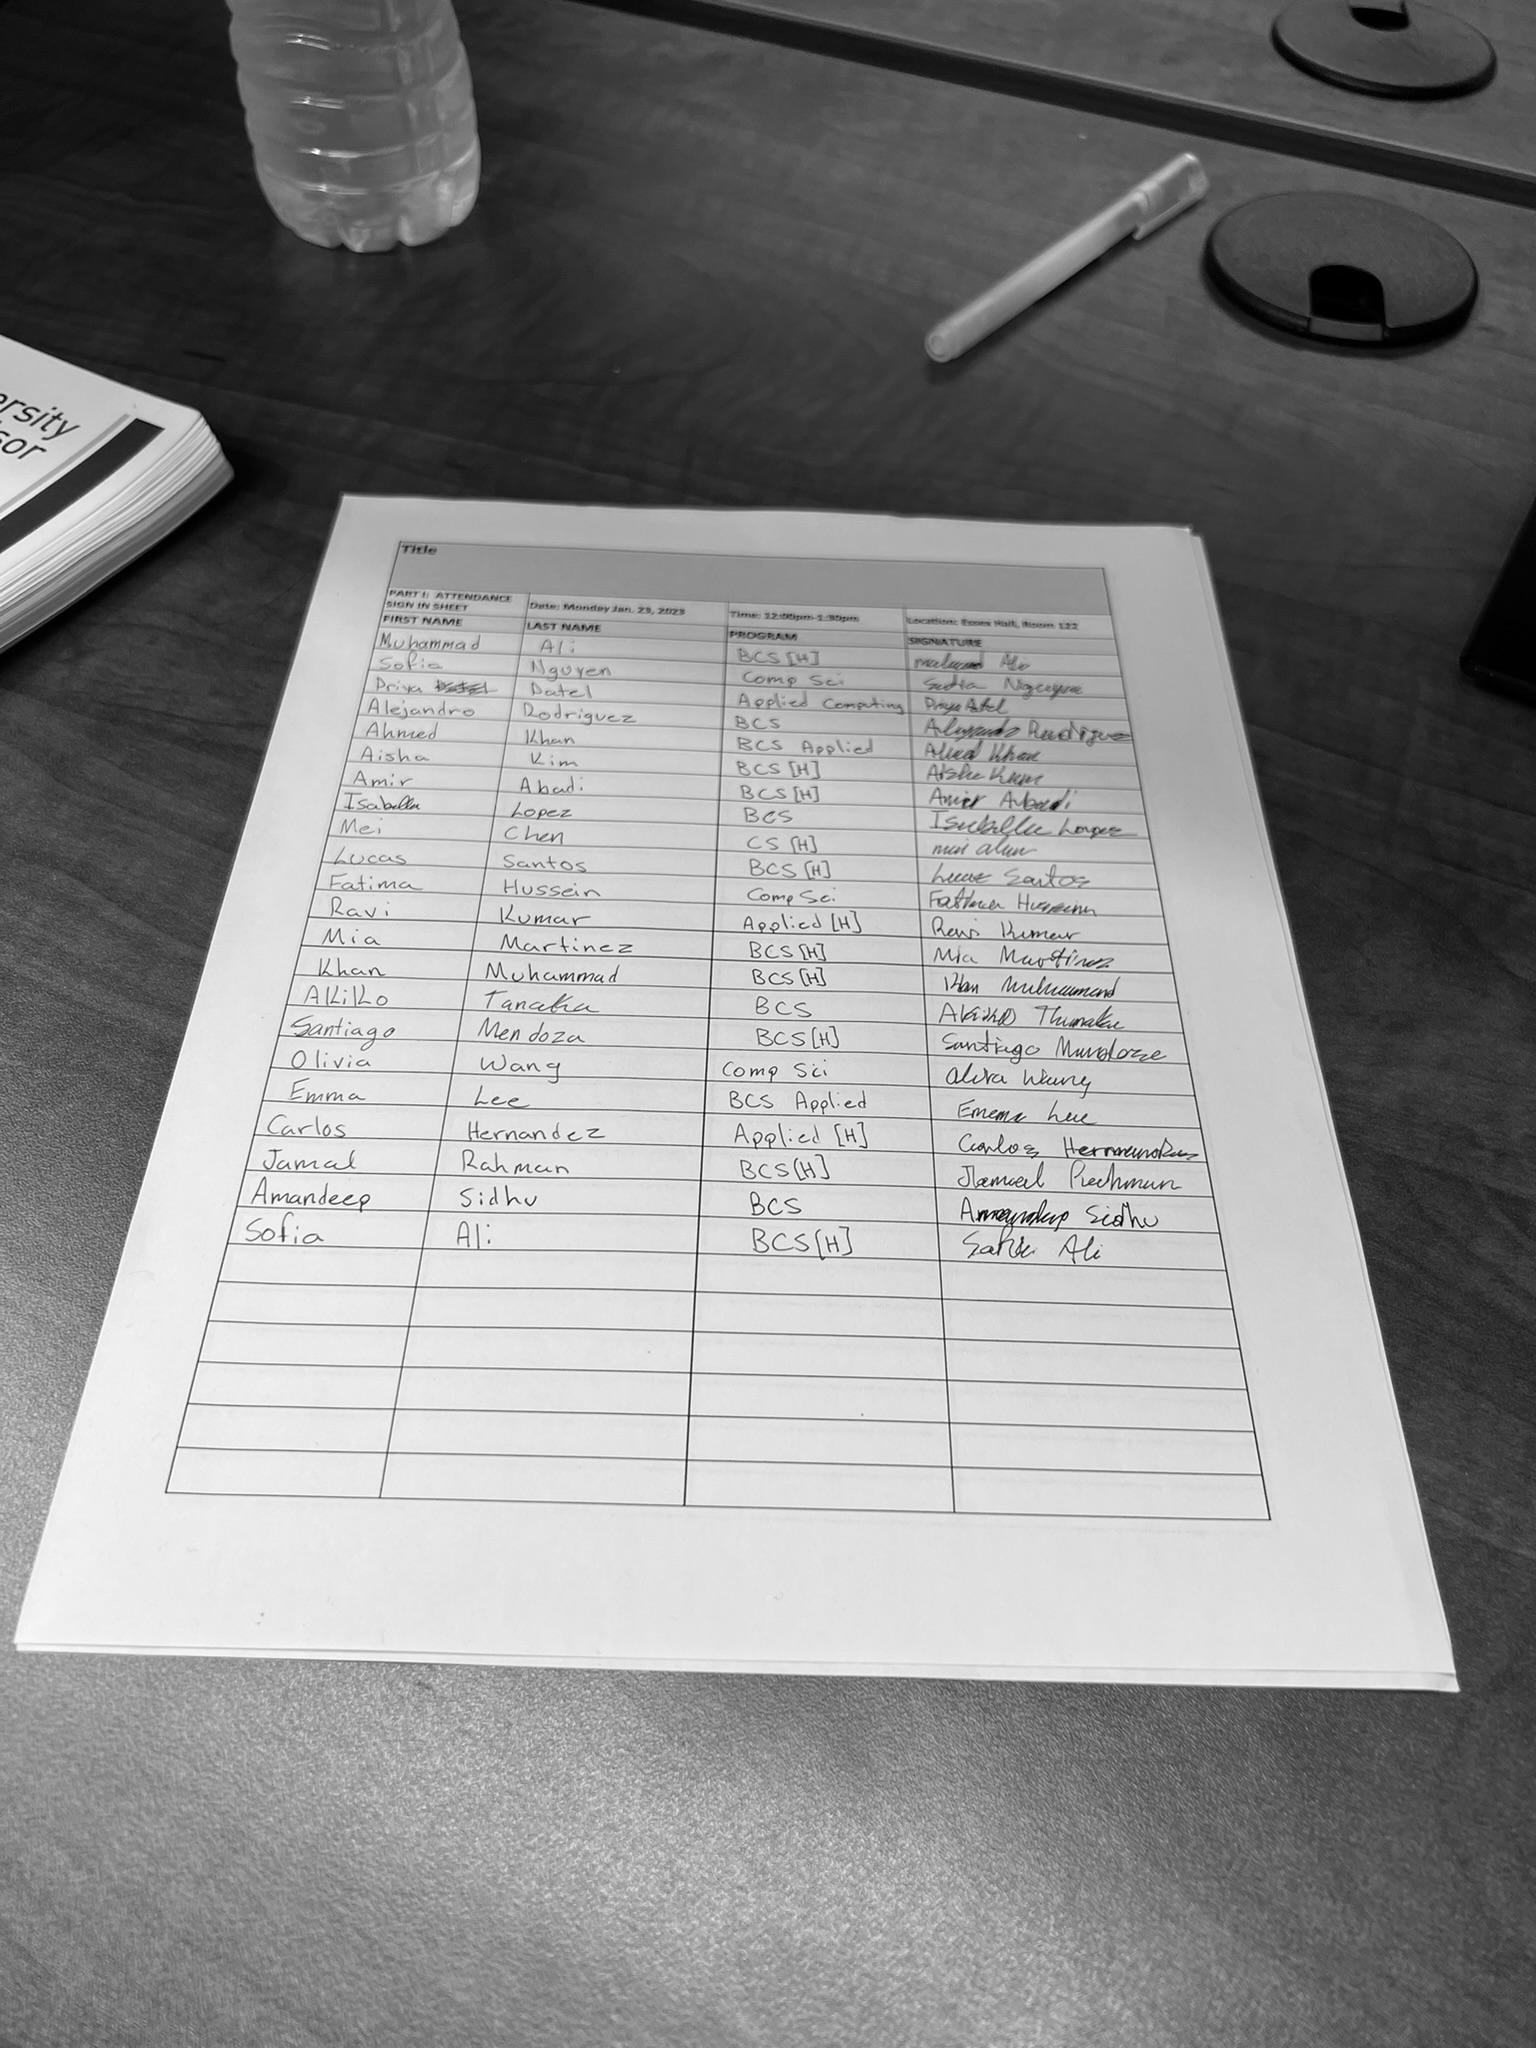 ersity
sor
Title
PART I: ATTENDANCE SIGN IN SHEET Date: Monday Jan. 23, 2023 Time: 12:00pm-1:30pm Location: Essex Hall, Room 122
FIRST NAME LAST NAME PROGRAM SIGNATURE
Muhammad Ali BCS [H] Ali
Sofia Nguyen Comp Sci Nguyen
Priya Patel Applied Computing Priya Patel
Alejandro Rodriguez BCS Alejandro Rodriguez
Ahmed Khan BCS Applied Ahmed Khan
Aisha Kim BCS [H] Aisha Kim
Amir Abadi BCS [H] Amir Abadi
Isabella Lopez BCS Isabella Lopez
Mei Chen CS [H] Mei Chen
Lucas Santos BCS [H] Lucas Santos
Fatima Hussein Comp Sci Fatima Hussein
Ravi Kumar Applied [H] Ravi Kumar
Mia Martinez BCS [H] Mia Martinez
Khan Muhammad BCS [H] Khan Muhammad
Akiko Tanaka BCS Akiko Tanaka
Santiago Mendoza BCS [H] Santiago Mendoza
Olivia Wang Comp Sci Olivia Wang
Emma Lee BCS Applied Emma Lee
Carlos Hernandez Applied [H] Carlos Hernandez
Jamal Rahman BCS [H] Jamal Rahman
Amandeep Sidhu BCS Amandeep Sidhu
Sofia Ali BCS [H] Ali